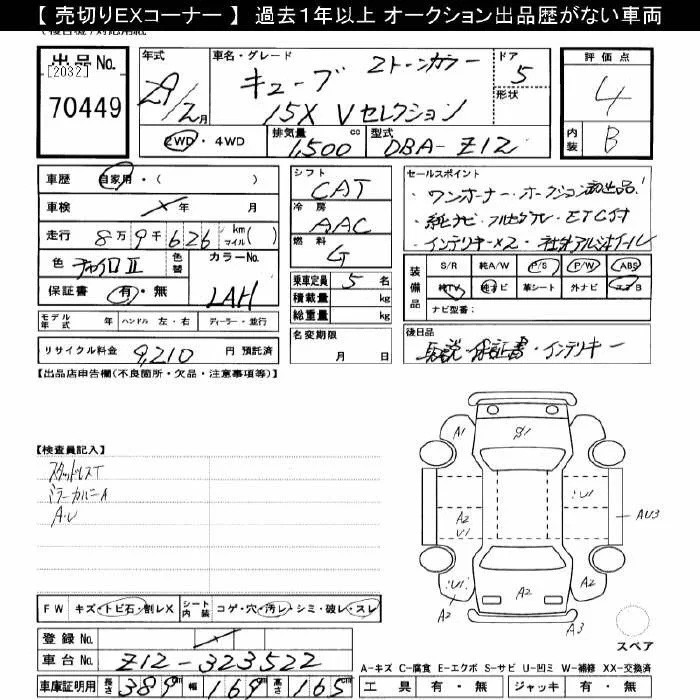 【 売切りEXコーナー 】 過去1年以上 オークション出品歴がない車両
出品No.
[2032]
70449
年式
29/2月
車名・グレード
キューブ 2トーンカラー
15X Vセレクション
ドア
5
形状
評価点
4
内装
B
2WD・4WD
排気量
1,500 cc
型式
DBA-Z12
車歴 自家用・( )
車検 × 年 月
走行 8万9千626 km マイル( )
色 チャイロⅡ 色替
カラーNo.
LAH
保証書 有・無
シフト
CAT
冷房
AAC
燃料
G
乗車定員 5 名
積載量 kg
総重量 kg
セールスポイント
・ワンオーナー・オークション初出品!
・純ナビ・フルセグTV・ETC付
・インテリキー×2・社外アルミホイール
装備品
S/R 純A/W P/S P/W ABS
純TV 純ナビ 革シート 外ナビ エアB
ナビ型番:
モデル年式 年 ハンドル 左・右 ディーラー・並行
リサイクル料金 9,210 円 預託済
名変期限
月 日
後日品
取説・保証書・インテリキー
【出品店申告欄(不良箇所・欠品・注意事項等)】
【検査員記入】
スタッドレスT
ミラーカバーA
A・U
A1
S1
U1
A2
U1
AU3
U1
A2
A2
A2
A2
A3
スペア
FW キズ・トビ石・割レX
シート内装 コゲ・穴・汚レ・シミ・破レ・スレ
登録No. ×
車台No. Z12-323522
車庫証明用 長さ 389 cm 幅 169 cm 高さ 165 cm
A-キズ C-腐食 E-エクボ S-サビ U-凹ミ W-補修 XX-交換済
工具 有・無 ジャッキ 有・無